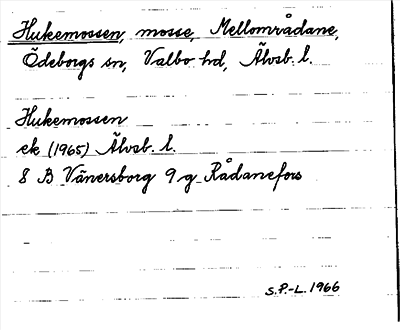 Hukemossen, mosse, Mellområdane,
Ödeborgs sn, Valbo hd, Älvsb. l.
Hukemossen
ek (1965) Älvsb. l.
8 B Vänersborg 9 g Rådanefors
S.P.-L. 1966